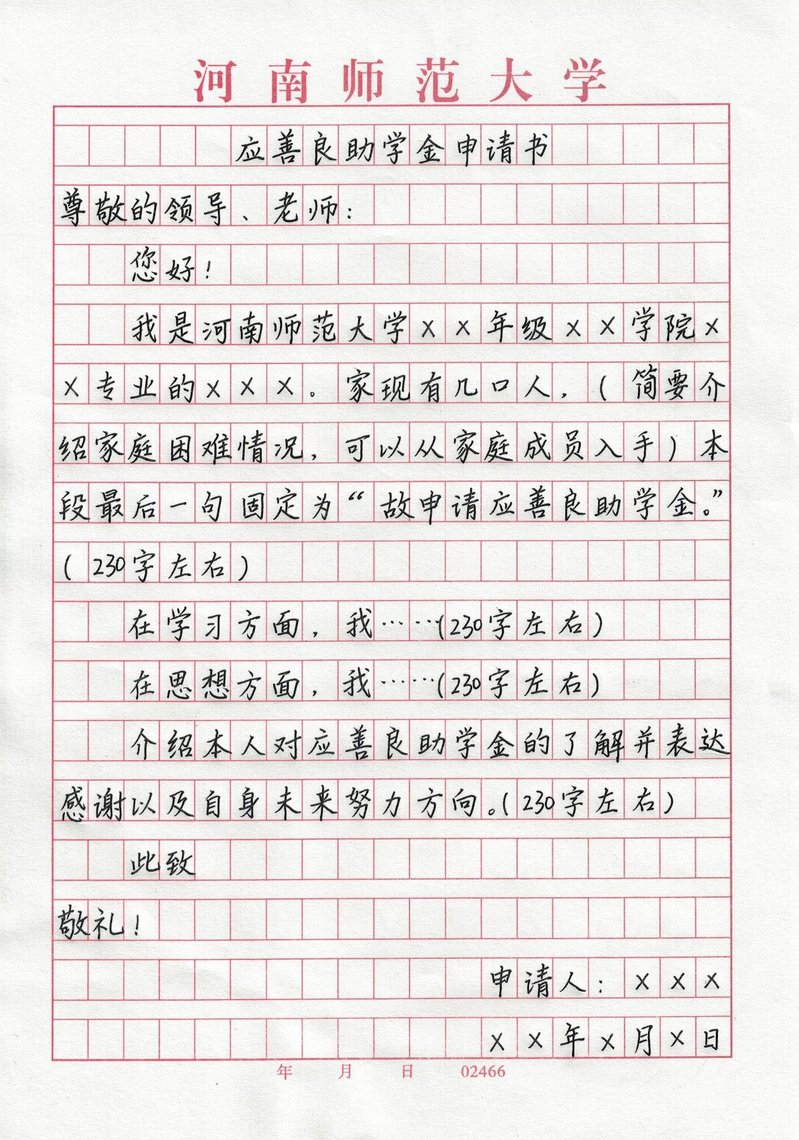 河南师范大学
应善良助学金申请书
尊敬的领导、老师：
您好！
我是河南师范大学××年级××学院×
×专业的×××。家现有几口人，（简要介
绍家庭困难情况，可以从家庭成员入手）本
段最后一句固定为“故申请应善良助学金。”
（230字左右）
在学习方面，我……（230字左右）
在思想方面，我……（230字左右）
介绍本人对应善良助学金的了解并表达
感谢以及自身未来努力方向。（230字左右）
此致
敬礼！
申请人：×××
××年×月×日
年 月 日 02466